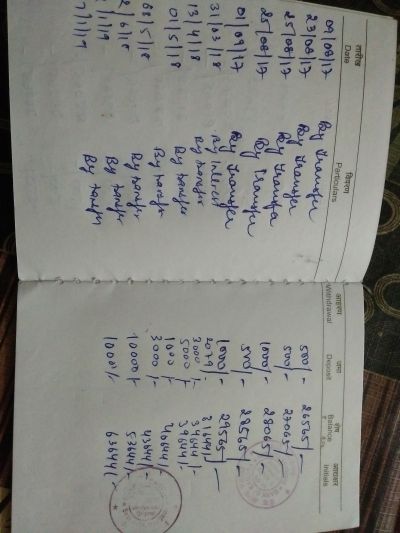 तारीख विवरण आहरण जमा शेष
Date Particulars Withdrawal Deposit Balance Initials
09/08/17 By Transfer 500/- 26565/-
23/08/17 By Transfer 500/- 27065/-
25/08/17 By Transfer 1000/- 28065/-
25/08/17 By Transfer 500/- 28565/-
01/09/17 By Transfer 1000/- 29565/-
31/03/18 By Interest 2079 31644/-
13/4/18 By transfer 3000/- 34644/-
01/5/18 By transfer 5000/- 39644/-
By transfer 1000/- 40644/-
8/5/18 By transfer 3000/- 43644/-
2/6/18 By transfer 10000/- 53644/-
By transfer 10000/- 63644/-